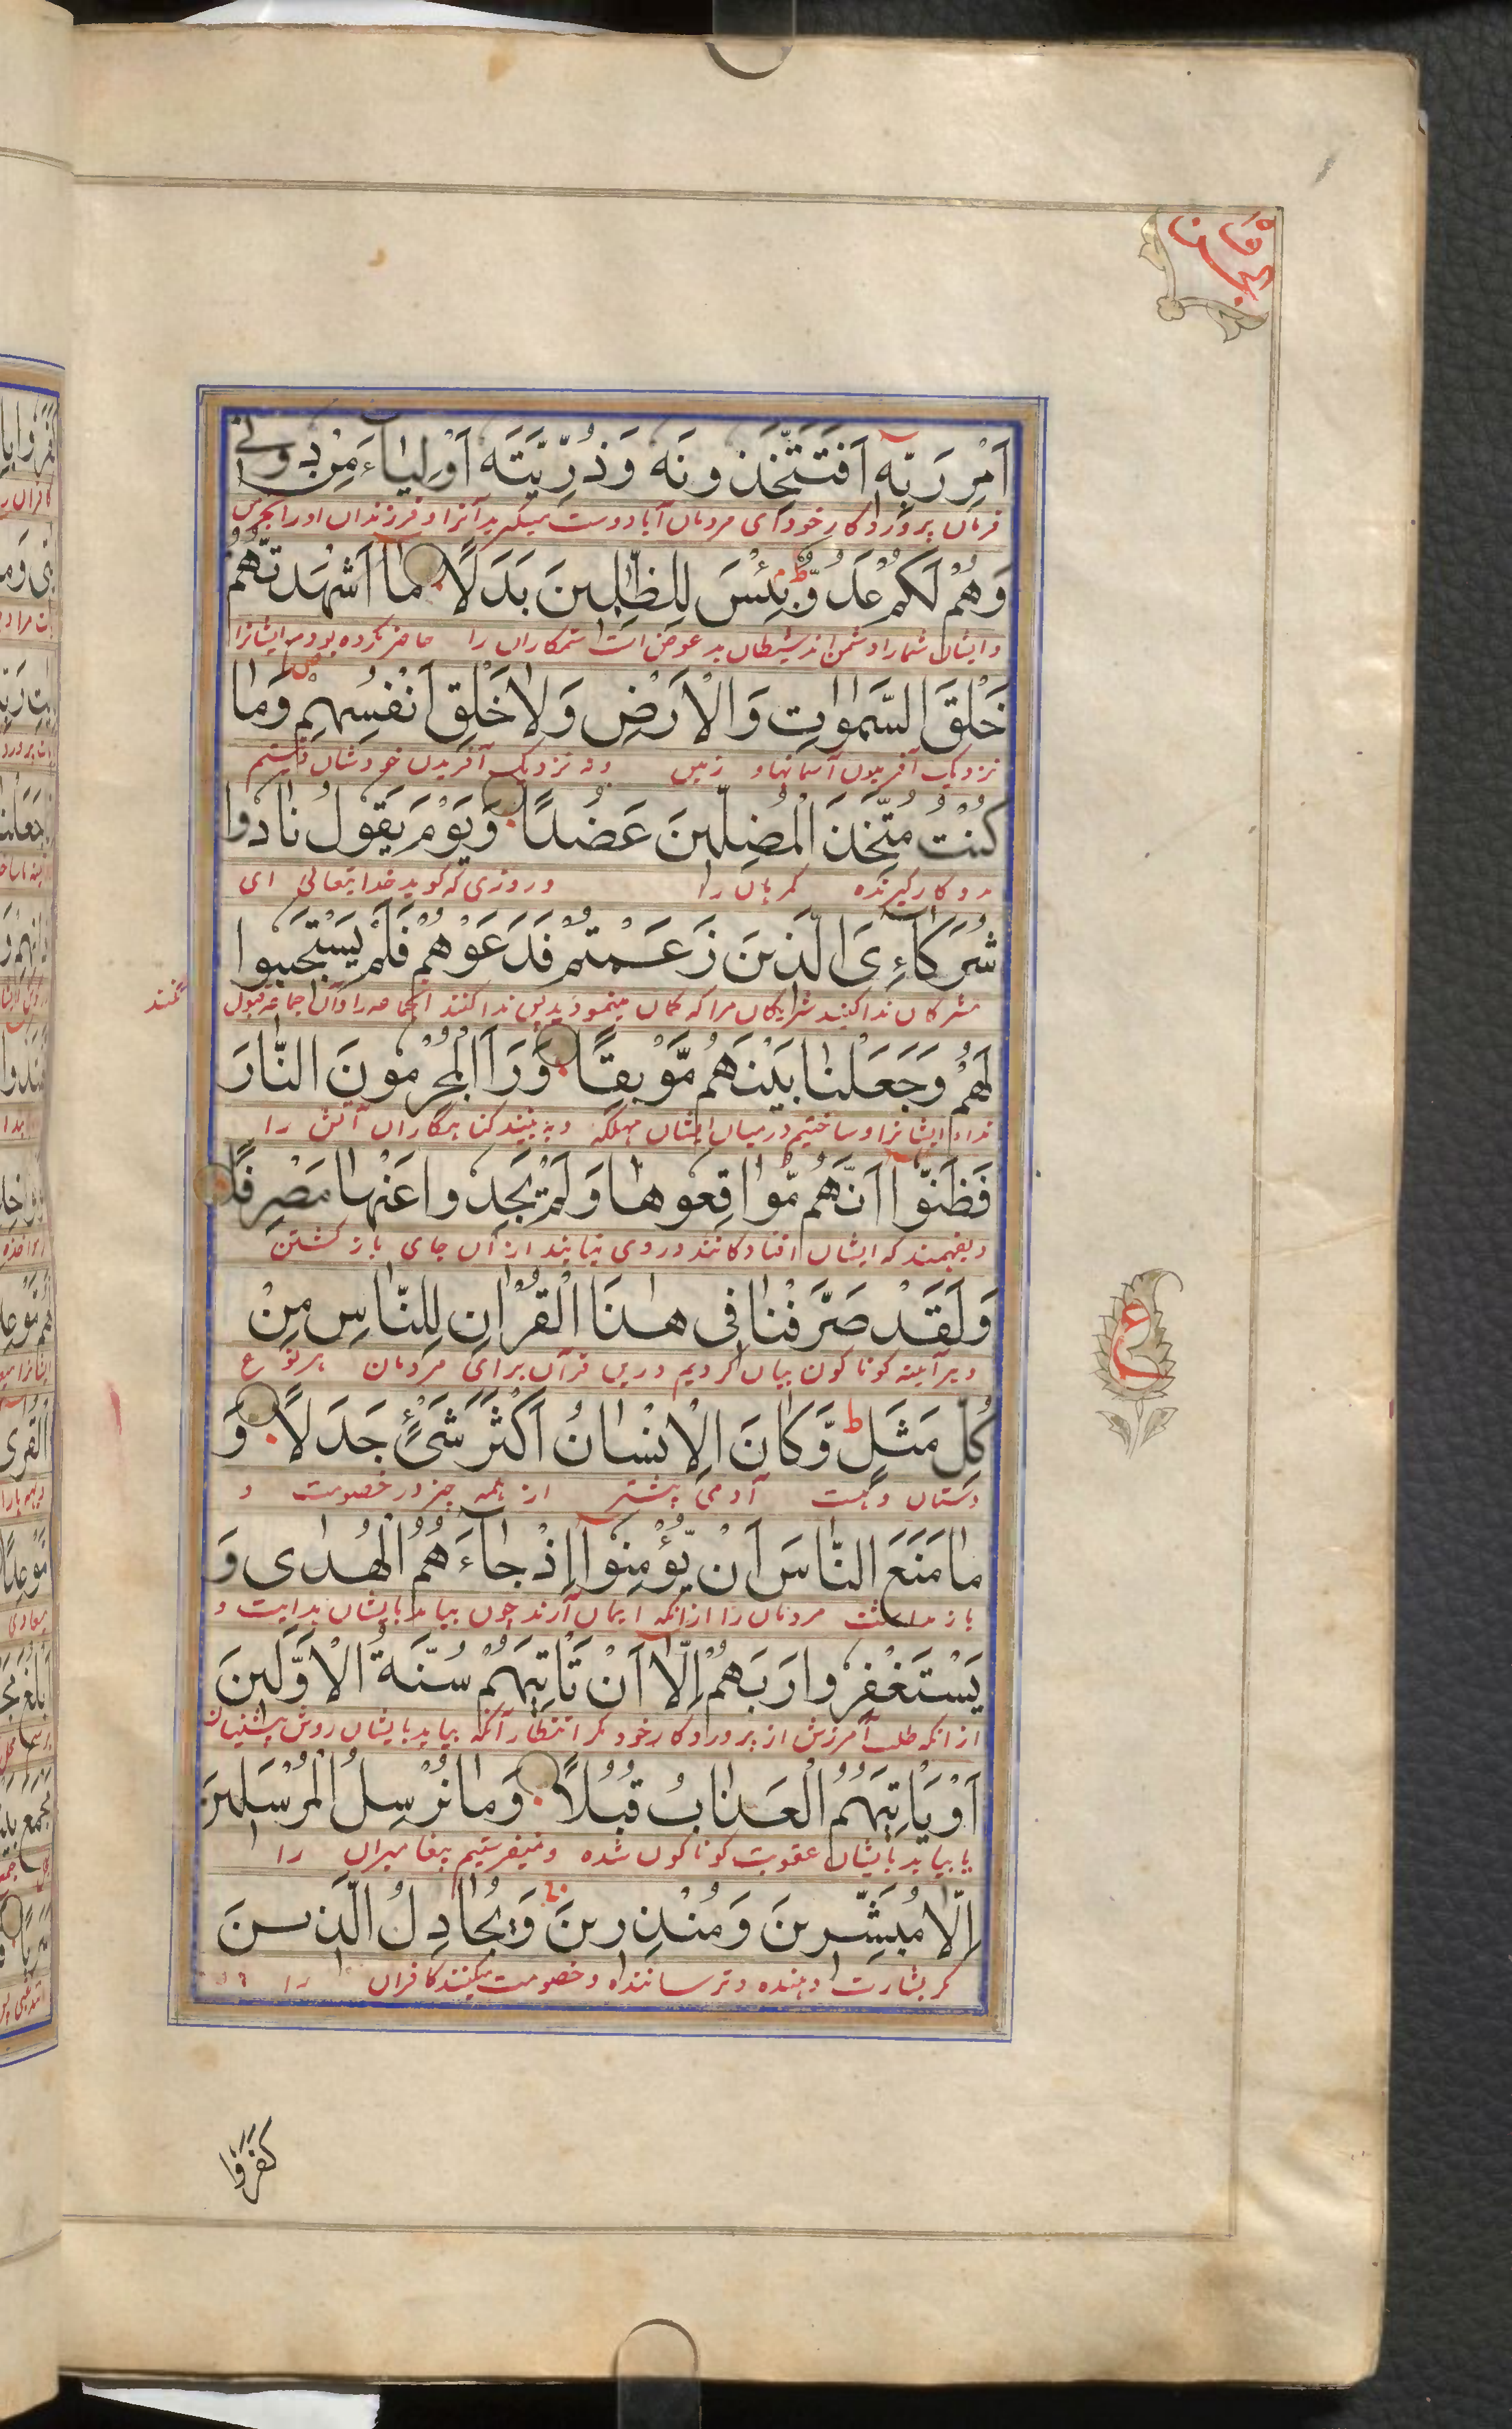 اَمْرِ رَبِّهٖ اَفَتَتَّخِذُونَهٗ وَذُرِّيَّتَهٗ اَوْلِيَاءَ مِنْ دُونِي
فرمان پروردگار خود ای مردمان آیا دوست میگیرید آنرا و فرزندان او را بجز من
وَهُمْ لَكُمْ عَدُوٌّ ط بِئْسَ لِلظّٰلِمِينَ بَدَلًا مَا اَشْهَدتُّهُمْ
و ایشان شما را دشمن اند شیطان بد عوض است ستمکاران را حاضر نکرده بودم ایشانرا
خَلْقَ السَّمٰوٰتِ وَالْاَرْضِ وَلَا خَلْقَ اَنْفُسِهِمْ وَمَا
نزدیک آفریدن آسمانها و زمین و نه نزدیک آفریدن خودشان و نیستم
كُنْتُ مُتَّخِذَ الْمُضِلِّينَ عَضُدًا وَيَوْمَ يَقُولُ نَادُوا
مددکار گیرنده گمراهان را و روزی که گوید خدایتعالی ای
شُرَكَاءِيَ الَّذِينَ زَعَمْتُمْ فَدَعَوْهُمْ فَلَمْ يَسْتَجِيبُوا
مشرکان ندا کنید شریکان مرا که گمان مینمودید پس ندا کنند آن جماعه را و آن جماعه قبول
نکنند
لَهُمْ وَجَعَلْنَا بَيْنَهُمْ مَّوْبِقًا وَرَاَ الْمُجْرِمُونَ النَّارَ
نداء ایشانرا و ساختیم در میان ایشان مهلکه و به بینند گناهگاران آتش را
فَظَنُّوا اَنَّهُمْ مُّوَاقِعُوهَا وَلَمْ يَجِدُوا عَنْهَا مَصْرِفًا
و بفهمند که ایشان افتادگانند در وی و نیابند از آن جای باز گشتن
وَلَقَدْ صَرَّفْنَا فِي هٰذَا الْقُرْاٰنِ لِلنَّاسِ مِنْ
و هر آینه گوناگون بیان کردیم درین قرآن برای مردمان هر نوع
كُلِّ مَثَلٍ ط وَّكَانَ الْاِنْسَانُ اَكْثَرَ شَيْءٍ جَدَلًا وَ
داستان و هست آدمی بیشتر از همه چیز در خصومت و
مَا مَنَعَ النَّاسَ اَنْ يُّؤْمِنُوا اِذْ جَاءَهُمُ الْهُدٰى وَ
باز نداشت مردمان را از انکه ایمان آرند چون بیامد بایشان هدایت و
يَسْتَغْفِرُوا رَبَّهُمْ اِلَّا اَنْ تَاْتِيَهُمْ سُنَّةُ الْاَوَّلِينَ
از انکه طلب آمرزش از پروردگار خود مگر انتظار آنکه بیاید بایشان روش پیشینیان
اَوْ يَاْتِيَهُمُ الْعَذَابُ قُبُلًا وَمَا نُرْسِلُ الْمُرْسَلِينَ
یا بیاید بایشان عقوبت گوناگون شده و نمیفرستیم پیغامبران را
اِلَّا مُبَشِّرِينَ وَمُنْذِرِينَ وَيُجَادِلُ الَّذِينَ
مگر بشارت دهنده و ترساننده و خصومت میکنند کافران را
ع
كَفَرُوا